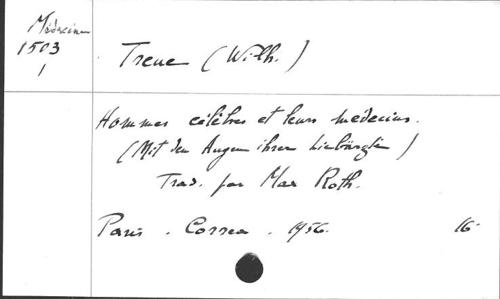 Médecine
1503
1
Treue (Wilh.)
Hommes célèbres et leurs médecins.
(Mit den Augen ihrer Leibärzte)
Trad. par Max Roth.
Paris. Correa. 1956. 16-